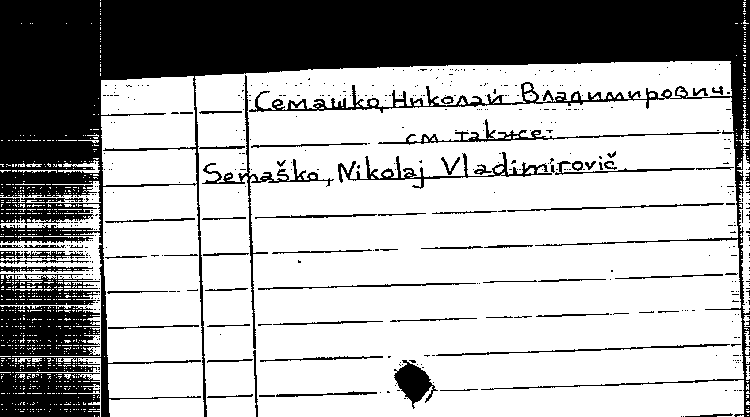 Семашко, Николай Владимирович.
см. также:
Semaško, Nikolaj Vladimirovič